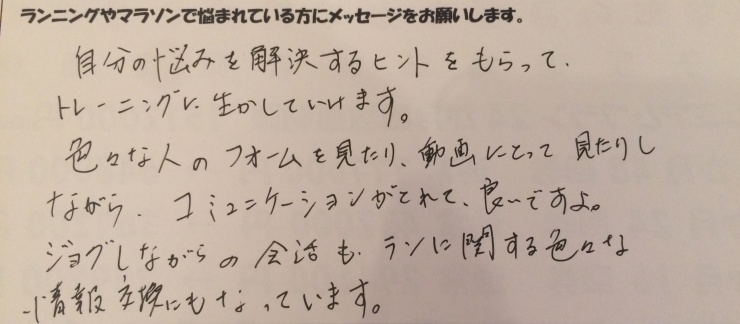 ランニングやマラソンで悩まれている方にメッセージをお願いします。
自分の悩みを解決するヒントをもらって、
トレーニングに生かしていけます。
色々な人のフォームを見たり、動画にとって見たりし
ながら、コミュニケーションがとれて、良いですよ。
ジョグしながらの会話も、ランに関する色々な
情報交換にもなっています。